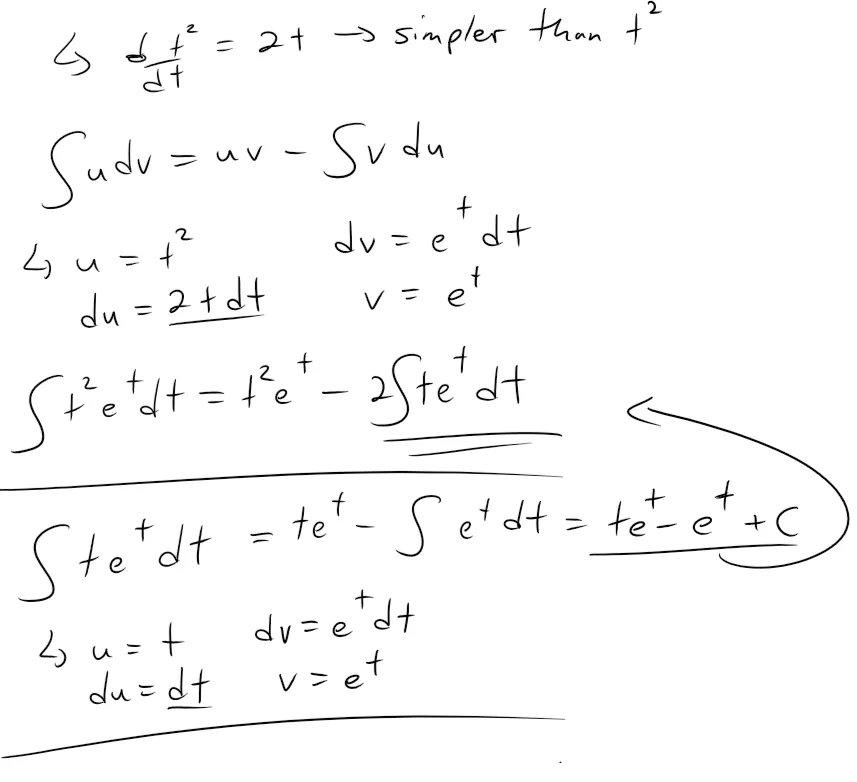 ↳ d/dt t² = 2t → simpler than t²
∫ u dv = uv − ∫ v du
↳ u = t² dv = e^t dt
du = 2t dt v = e^t
∫ t² e^t dt = t² e^t − 2∫ t e^t dt
∫ t e^t dt = t e^t − ∫ e^t dt = t e^t − e^t + C
↳ u = t dv = e^t dt
du = dt v = e^t